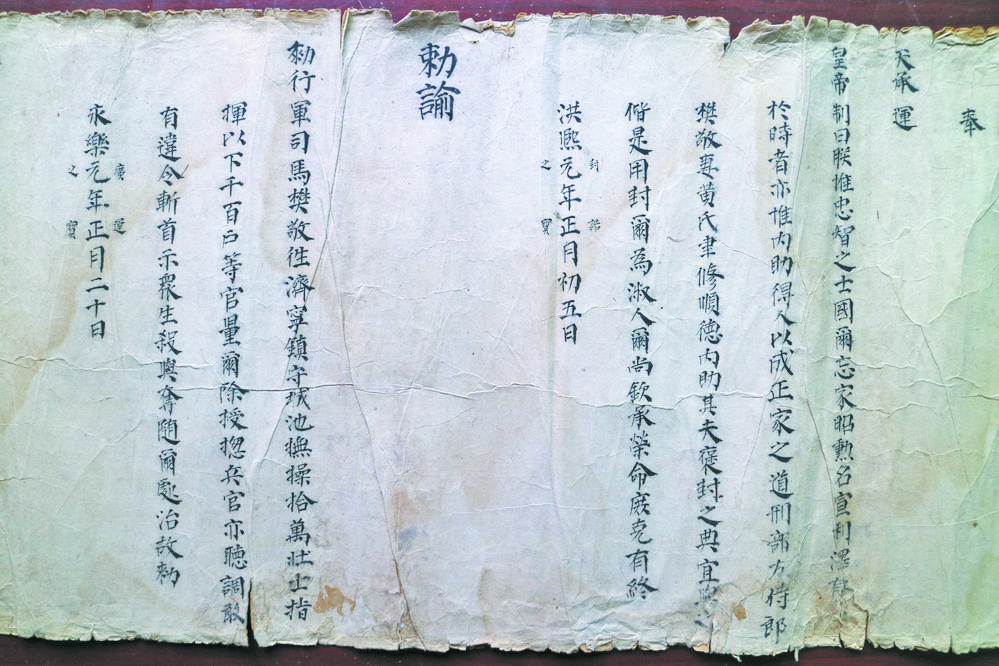 奉
天承運
皇帝制曰朕惟忠智之士國爾忘家昭勲名宣利澤
於時者亦惟內助得人以成正家之道刑部左侍郎
樊敬妻黃氏聿修順德內助其夫褒封之典宜
偕是用封爾為淑人爾尚欽承榮命厥克有終
洪熙元年正月初五日
封誥
之寶
勑諭
勑行軍司馬樊敬徃濟寧鎮守城池撫操拾萬壯士指
揮以下千百户等官量爾除授摠兵官亦聽調敢
有違令斬首示衆生殺與奪隨爾處治故勑
永樂元年正月二十日
廣運
之寶